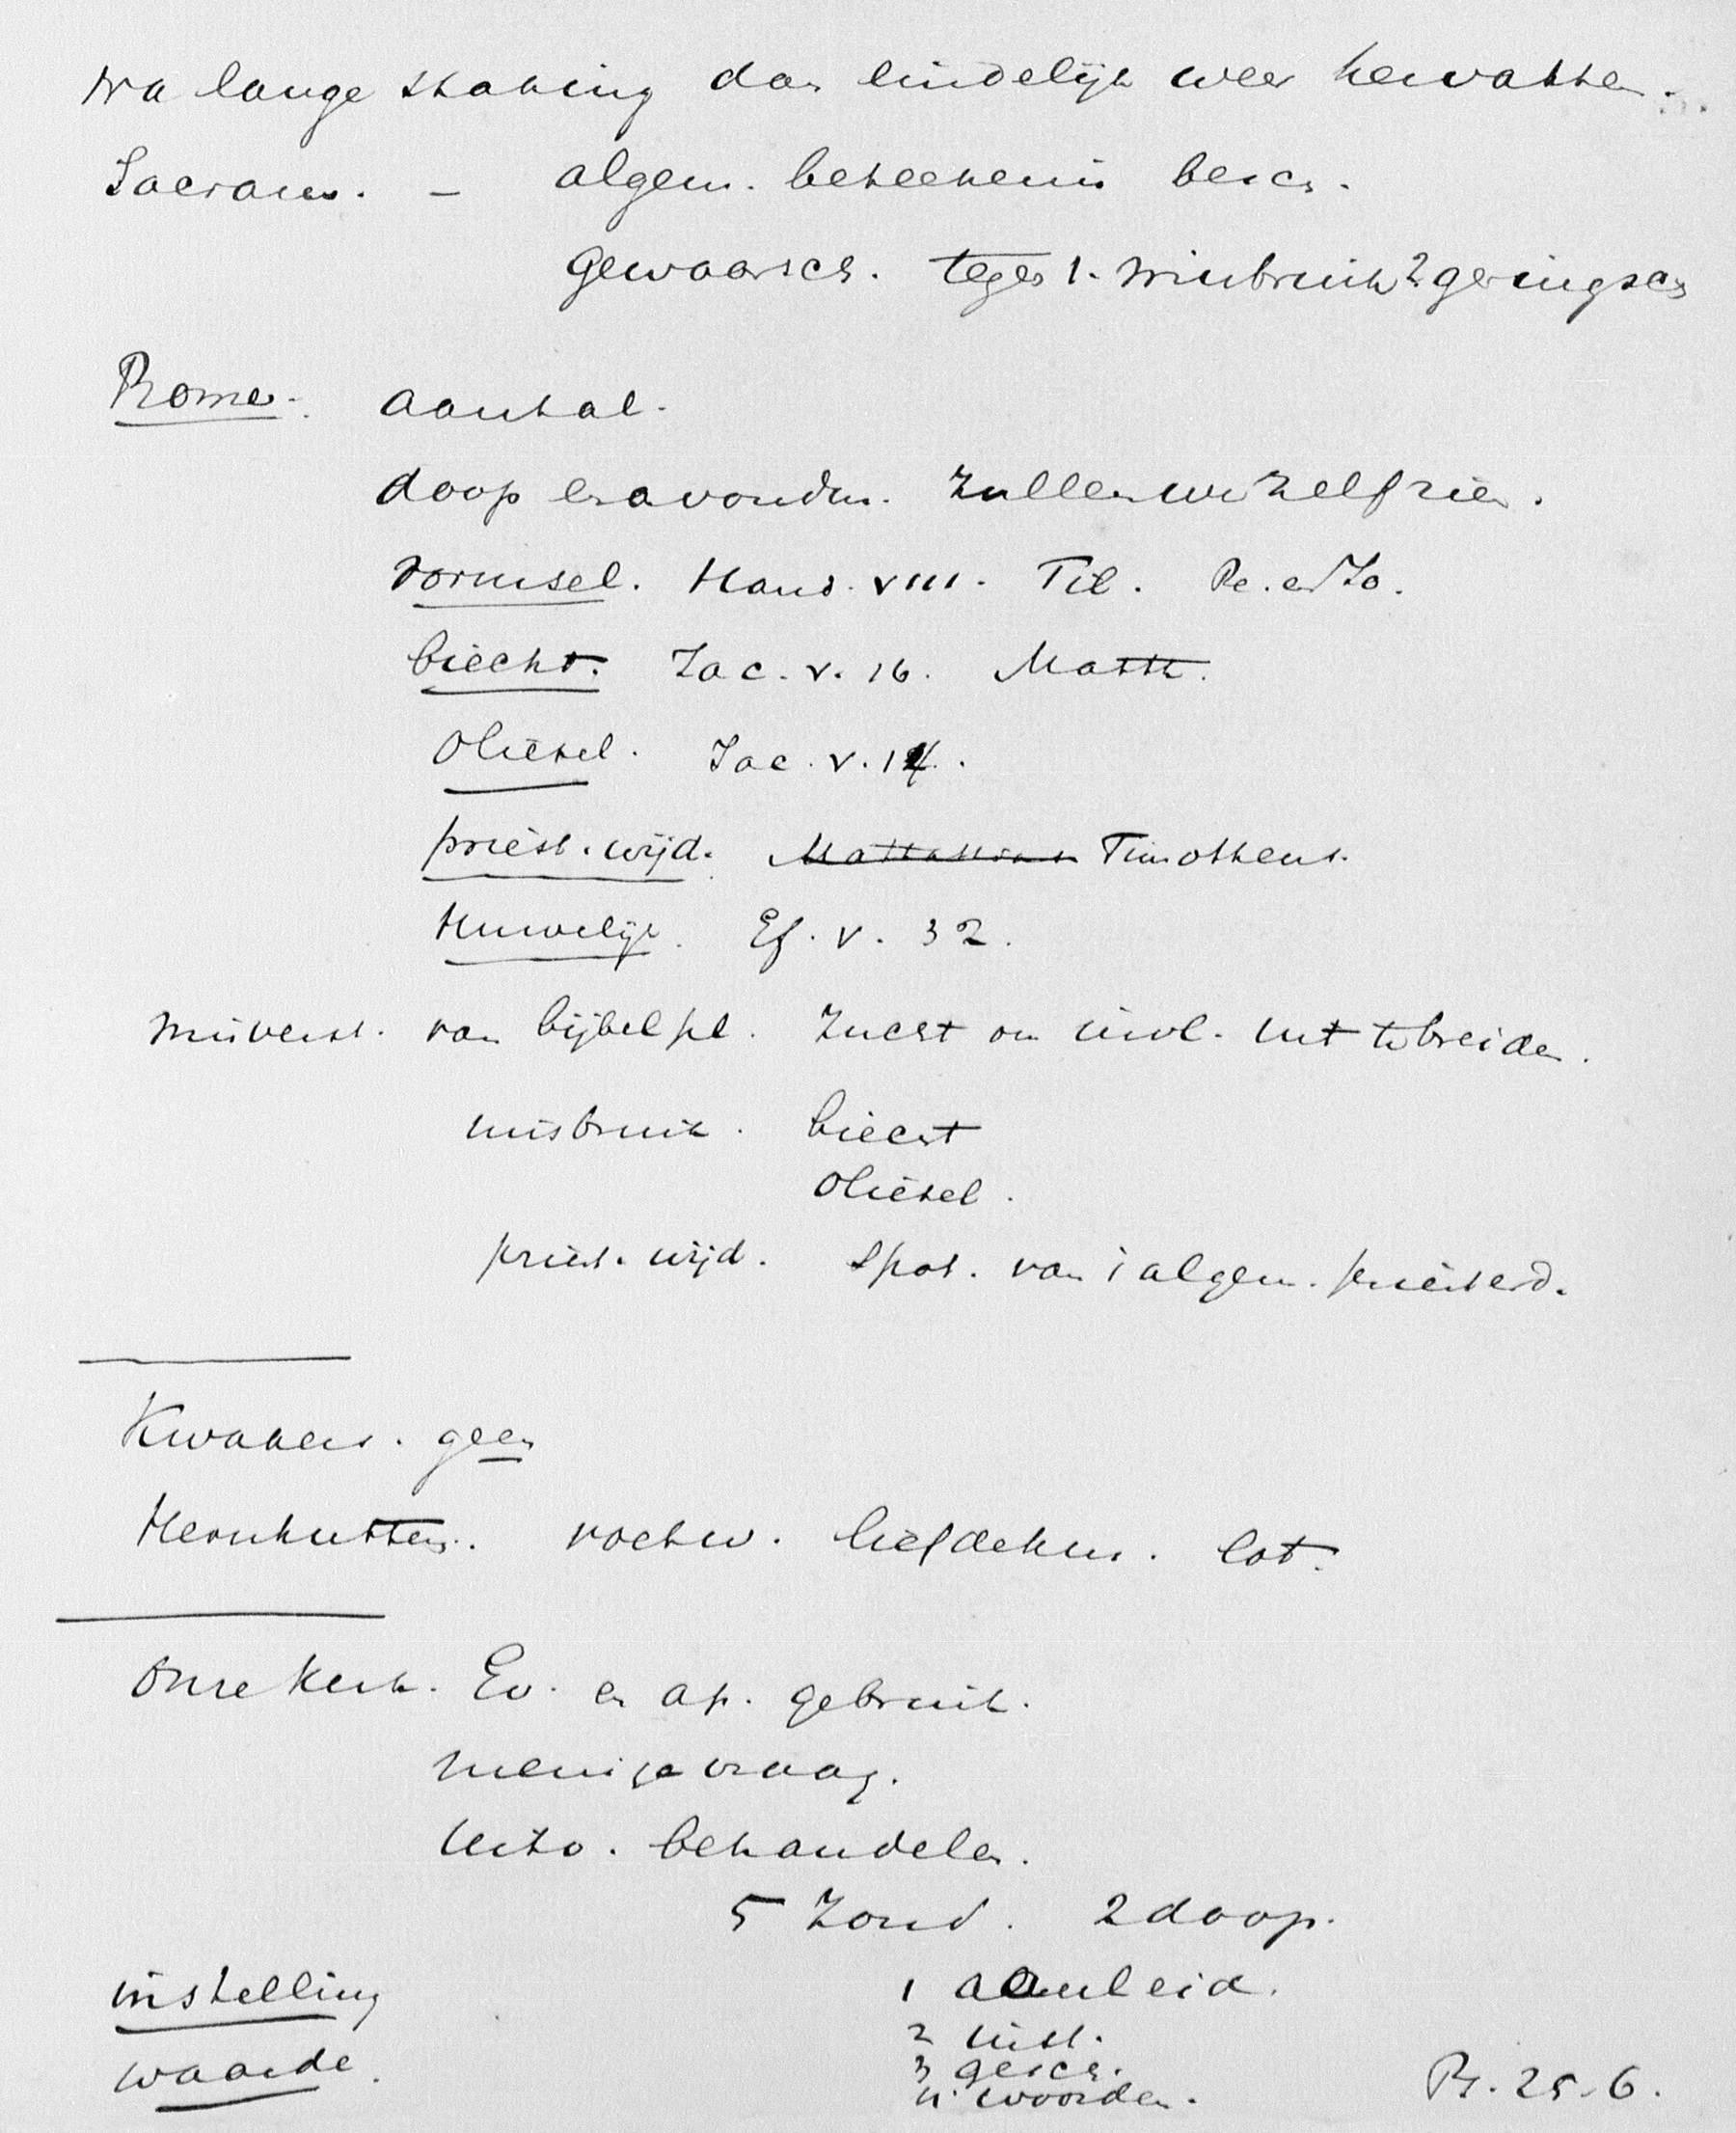 Na lange staking dan eindelijk weer hervatten.
Sacram. - algem. beteekenis besch.
Gewaarsch. tegen 1. misbruik 2 geringsch
Rome. aantal.
doop en avondm. Zullen we zelf zien.
vormsel. Hand. VIII. Fil. Pe. en Jo.
biecht. Jac. v. 16. Matth.
Oliesel. Jac. v. 14.
priest. wijd. Timotheus.
Huwelijk. Ef. v. 32.
misverst. van bijbelpl. Zucht om invl. uit te breiden.
misbruik. biecht
Oliesel.
priest. wijd. Spot. van 't algem. priesterd.
Kwakers. geen
Hernhutters. voetw. liefdekus. lot.
Onze Kerk. Ev. en ap. gebruik.
menige vraag.
Uitv. behandelen.
5 Zond. 2 doop.
instelling 1 aanleid.
2 inst.
waarde. 3 gesch.
4. woorden. Ps. 25-6.